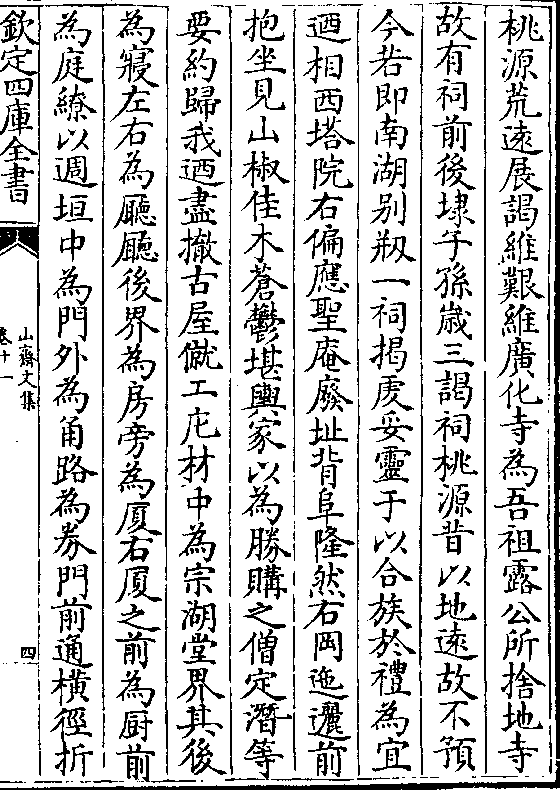 桃源荒遠展謁維艱維廣化寺為吾祖露公所捨地寺
故有祠前後埭子孫歲三謁祠桃源昔以地遠故不預
今若即南湖别剏一祠揭虔妥靈于以合族於禮為宜
迺相西塔院右偏應聖庵廢址背阜隆然右岡迤邐前
抱坐見山椒佳木蒼鬱堪輿家以為勝購之僧定潛等
要約歸我迺盡撤古屋僦工庀材中為宗湖堂界其後
為寢左右為廳廳後界為房旁為厦右厦之前為厨前
為庭繚以週垣中為門外為甬路為券門前通橫徑折
欽定四庫全書
山齋文集
卷十一
四